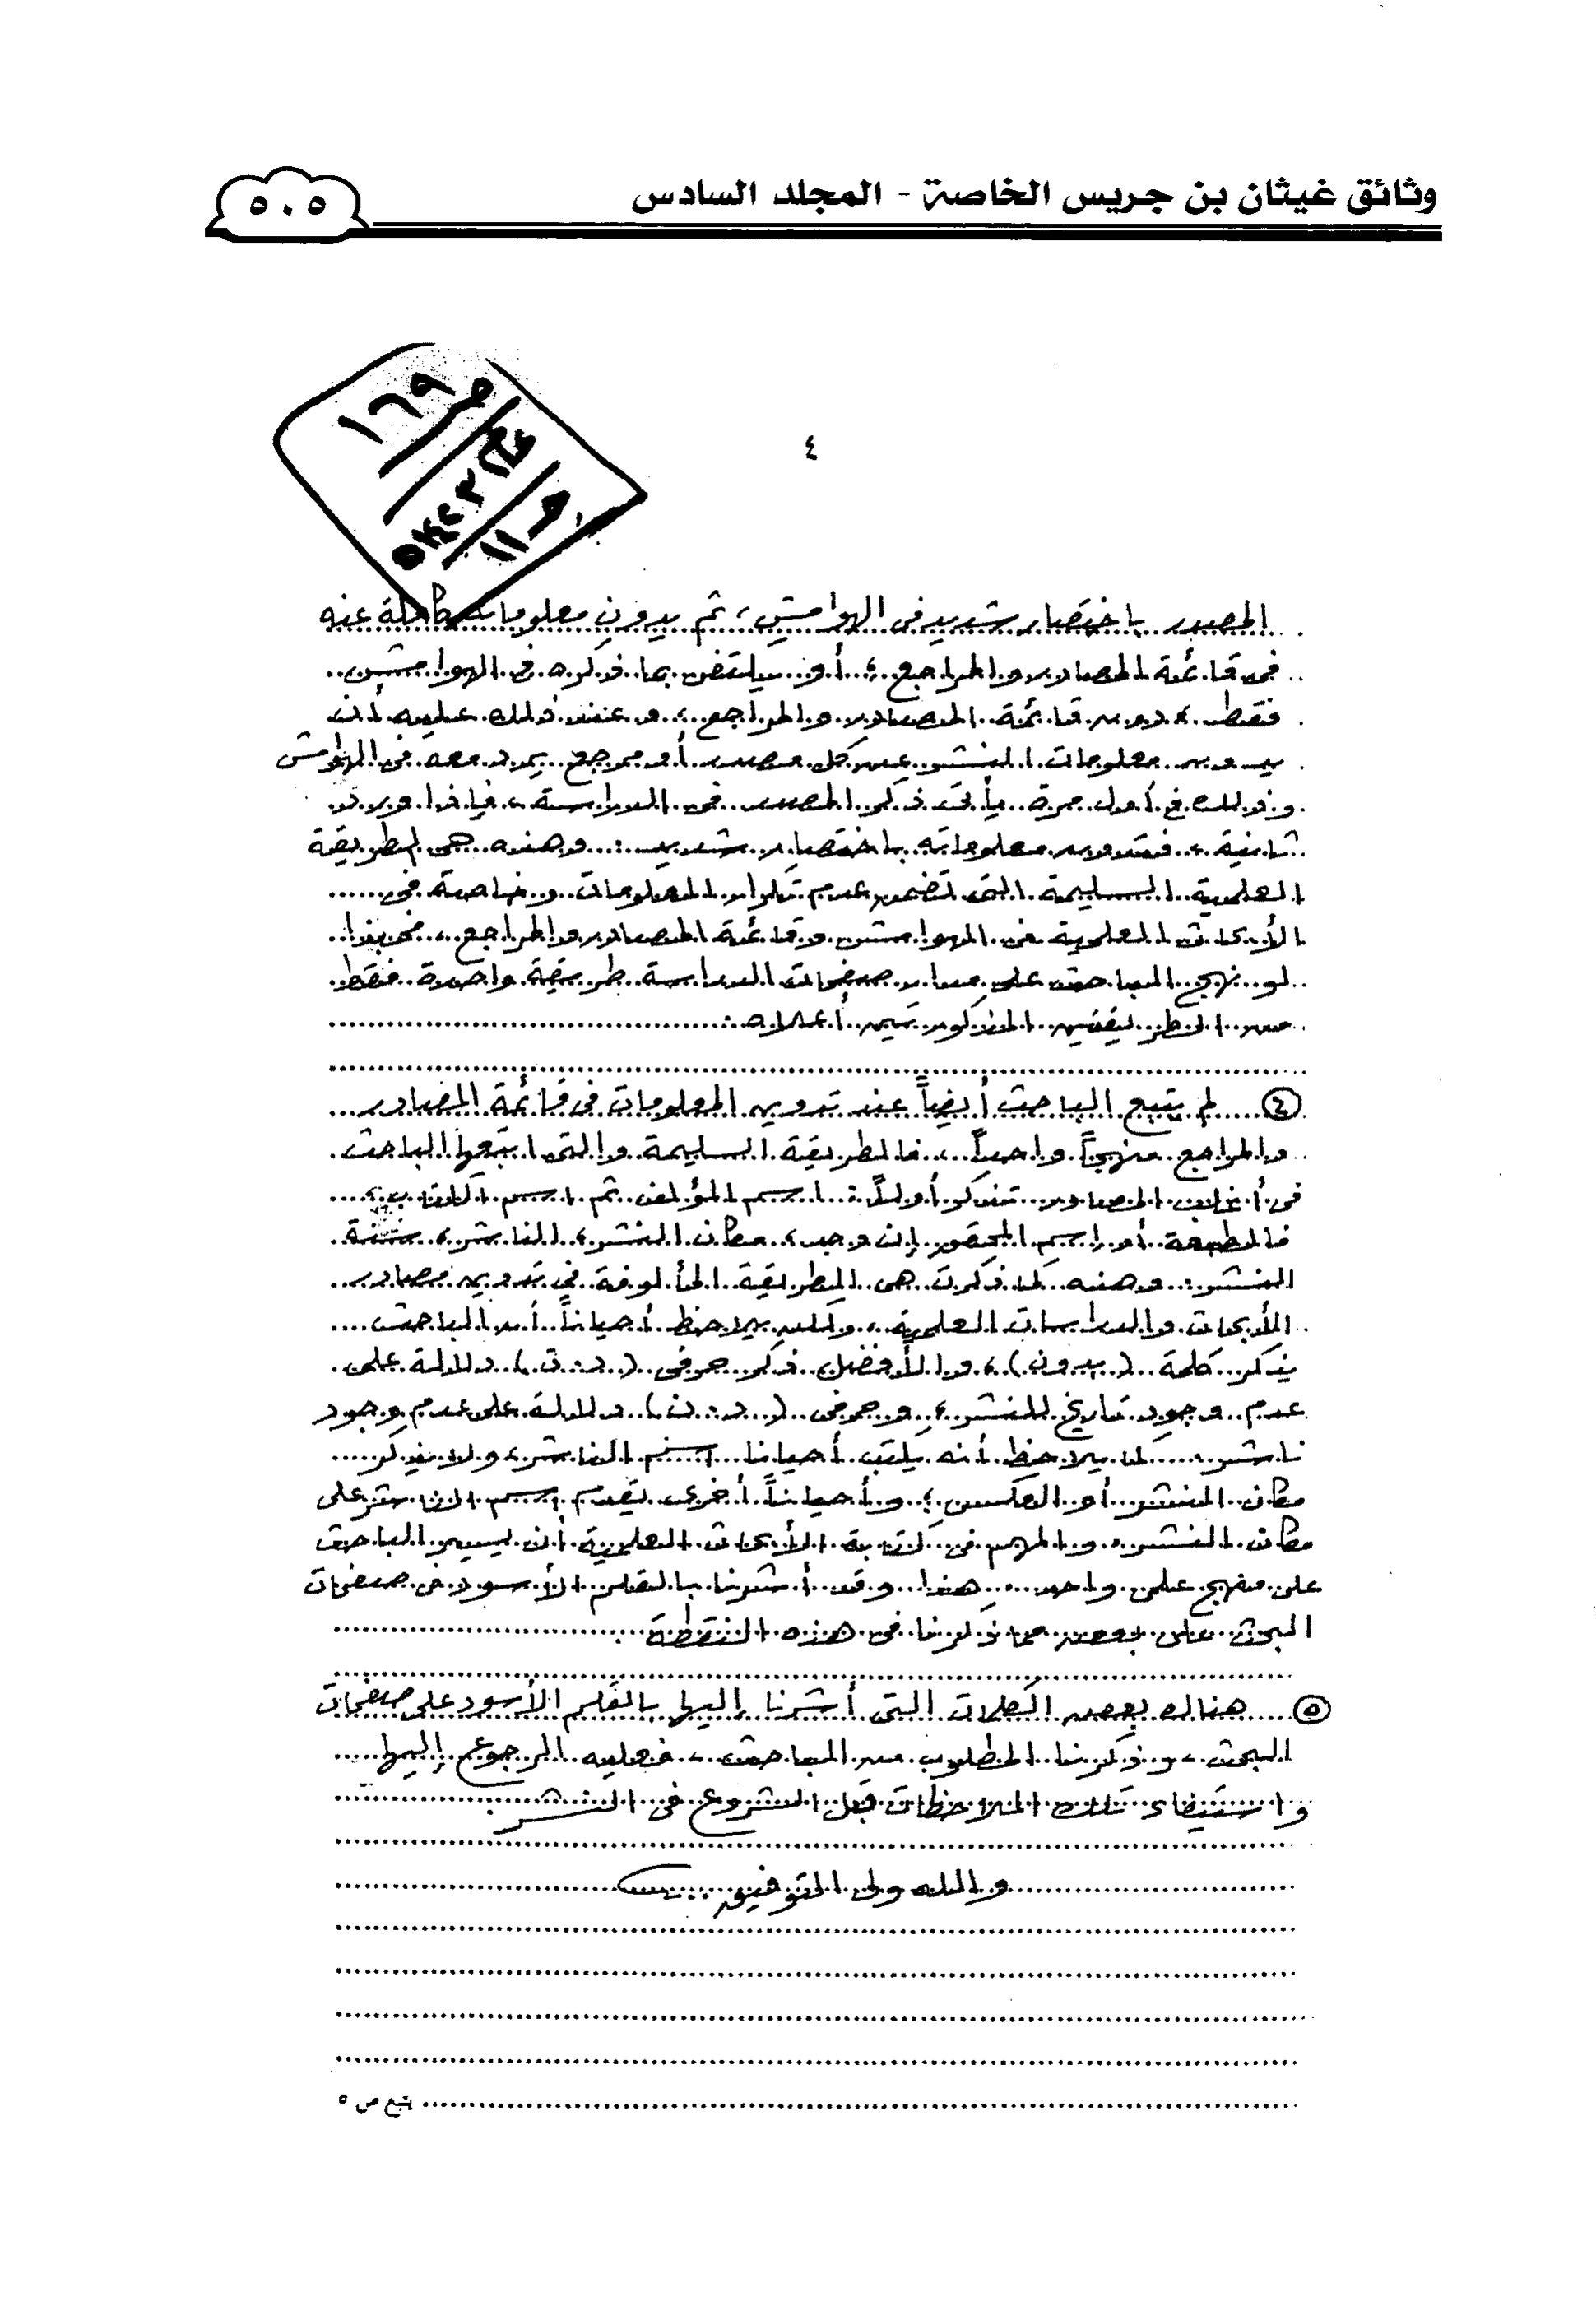 وثائق غيثان بن جريس الخاصة - المجلد السادس
٥٠٥
ص ١٦٩
١٤٢٣هـ
جـ ١١
٤
المصدر باختصار شديد في الهوامش، ثم يدون معلومات كاملة عنه
في قائمة المصادر والمراجع، أو يكتفي بما ذكره في الهوامش
فقط، دون قائمة المصادر والمراجع، وعند ذلك عليه أن
يدون معلومات النشر عن كل مصدر أو مرجع يرد معه في الهوامش
وذلك في أول مرة يأتي ذكر المصدر في الدراسة، فإذا ورد
ثانية، فتدون معلوماته باختصار شديد. وهذه هي الطريقة
العلمية السليمة التي تضمن عدم تكرار المعلومات وخاصة في
الأبحاث العلمية في الهوامش وقائمة المصادر والمراجع، فحبذا
لو نهج الباحث على مدار صفحات الدراسة طريقة واحدة فقط
من الطريقتين المذكورتين أعلاه.
٤ لم يتبع الباحث أيضاً عند تدوين المعلومات في قائمة المصادر
والمراجع منهجاً واحداً، فالطريقة السليمة والتي اتبعها الباحث
في أغلب المصادر تذكر أولاً: اسم المؤلف ثم اسم الكتاب،
فالطبعة أو اسم المحقق إن وجد، مكان النشر، الناشر، سنة
النشر. وهذه كما ذكرت هي الطريقة المألوفة في تدوين مصادر
الأبحاث والدراسات العلمية، ولكن يلاحظ أحياناً أن الباحث
يذكر كلمة (بدون)، والأفضل ذكر حرفي (د.ت) دلالة على
عدم وجود تاريخ للنشر، وحرفي (د.ن) دلالة على عدم وجود
ناشر. كما يلاحظ أنه يكتب أحيانا اسم الناشر، ولا يذكر
مكان النشر أو العكس، وأحياناً أخرى يقدم اسم الناشر على
مكان النشر، والمهم في كتابة الأبحاث العلمية أن يسير الباحث
على منهج علمي واحد. هذا وقد أشرنا بالقلم الأسود في صفحات
البحث على بعض مما ذكرنا في هذه النقطة.
٥ هناك بعض الكلمات التي أشرنا إليها بالقلم الأسود على صفحات
البحث، وذكرنا المطلوب من الباحث، فعليه الرجوع إليها
واستيفاء تلك الملاحظات قبل الشروع في النشر
والله ولي التوفيق
يتبع ص ٥